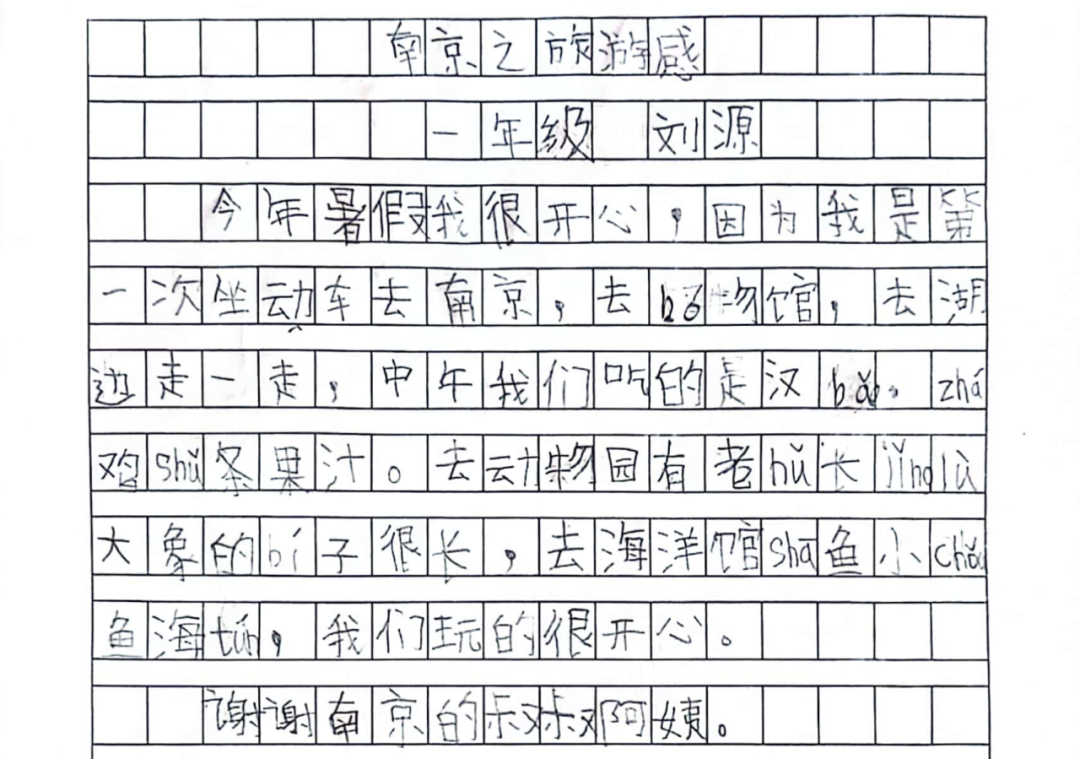 南京之旅游感
一年级 刘源
今年暑假我很开心，因为我是第
一次坐动车去南京，去bó物馆，去湖
边走一走，中午我们吃的是汉bǎo。zhá
鸡shǔ条果汁。去动物园有老hǔ长jǐnglù
大象的bí子很长，去海洋馆shā鱼小chǒu
鱼海tún，我们玩的很开心。
谢谢南京的叔叔阿姨。